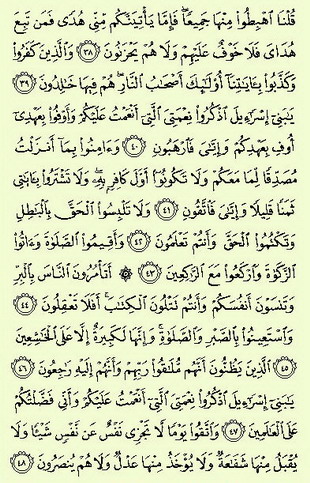 قُلْنَا ٱهْبِطُوا۟ مِنْهَا جَمِيعًا ۖ فَإِمَّا يَأْتِيَنَّكُم مِّنِّى هُدًى فَمَن تَبِعَ
هُدَاىَ فَلَا خَوْفٌ عَلَيْهِمْ وَلَا هُمْ يَحْزَنُونَ ﴿٣٨﴾ وَٱلَّذِينَ كَفَرُوا۟
وَكَذَّبُوا۟ بِـَٔايَـٰتِنَآ أُو۟لَـٰٓئِكَ أَصْحَـٰبُ ٱلنَّارِ ۖ هُمْ فِيهَا خَـٰلِدُونَ ﴿٣٩﴾
يَـٰبَنِىٓ إِسْرَٰٓءِيلَ ٱذْكُرُوا۟ نِعْمَتِىَ ٱلَّتِىٓ أَنْعَمْتُ عَلَيْكُمْ وَأَوْفُوا۟ بِعَهْدِىٓ
أُوفِ بِعَهْدِكُمْ وَإِيَّـٰىَ فَٱرْهَبُونِ ﴿٤٠﴾ وَءَامِنُوا۟ بِمَآ أَنزَلْتُ
مُصَدِّقًا لِّمَا مَعَكُمْ وَلَا تَكُونُوٓا۟ أَوَّلَ كَافِرٍۭ بِهِۦ ۖ وَلَا تَشْتَرُوا۟ بِـَٔايَـٰتِى
ثَمَنًا قَلِيلًا وَإِيَّـٰىَ فَٱتَّقُونِ ﴿٤١﴾ وَلَا تَلْبِسُوا۟ ٱلْحَقَّ بِٱلْبَـٰطِلِ
وَتَكْتُمُوا۟ ٱلْحَقَّ وَأَنتُمْ تَعْلَمُونَ ﴿٤٢﴾ وَأَقِيمُوا۟ ٱلصَّلَوٰةَ وَءَاتُوا۟
ٱلزَّكَوٰةَ وَٱرْكَعُوا۟ مَعَ ٱلرَّٰكِعِينَ ﴿٤٣﴾ ۞ أَتَأْمُرُونَ ٱلنَّاسَ بِٱلْبِرِّ
وَتَنسَوْنَ أَنفُسَكُمْ وَأَنتُمْ تَتْلُونَ ٱلْكِتَـٰبَ ۚ أَفَلَا تَعْقِلُونَ ﴿٤٤﴾
وَٱسْتَعِينُوا۟ بِٱلصَّبْرِ وَٱلصَّلَوٰةِ ۚ وَإِنَّهَا لَكَبِيرَةٌ إِلَّا عَلَى ٱلْخَـٰشِعِينَ
﴿٤٥﴾ ٱلَّذِينَ يَظُنُّونَ أَنَّهُم مُّلَـٰقُوا۟ رَبِّهِمْ وَأَنَّهُمْ إِلَيْهِ رَٰجِعُونَ ﴿٤٦﴾
يَـٰبَنِىٓ إِسْرَٰٓءِيلَ ٱذْكُرُوا۟ نِعْمَتِىَ ٱلَّتِىٓ أَنْعَمْتُ عَلَيْكُمْ وَأَنِّى فَضَّلْتُكُمْ
عَلَى ٱلْعَـٰلَمِينَ ﴿٤٧﴾ وَٱتَّقُوا۟ يَوْمًا لَّا تَجْزِى نَفْسٌ عَن نَّفْسٍ شَيْـًٔا وَلَا
يُقْبَلُ مِنْهَا شَفَـٰعَةٌ وَلَا يُؤْخَذُ مِنْهَا عَدْلٌ وَلَا هُمْ يُنصَرُونَ ﴿٤٨﴾